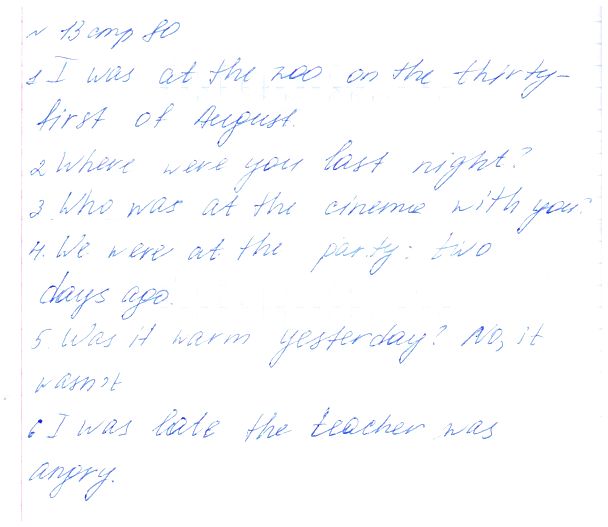 № 13 стр 80
1 I was at the zoo on the thirty-
first of August.
2 Where were you last night?
3. Who was at the cinema with you?
4. We were at the party: two
days ago.
5. Was it warm yesterday? No, it
wasn't
6 I was late the teacher was
angry.